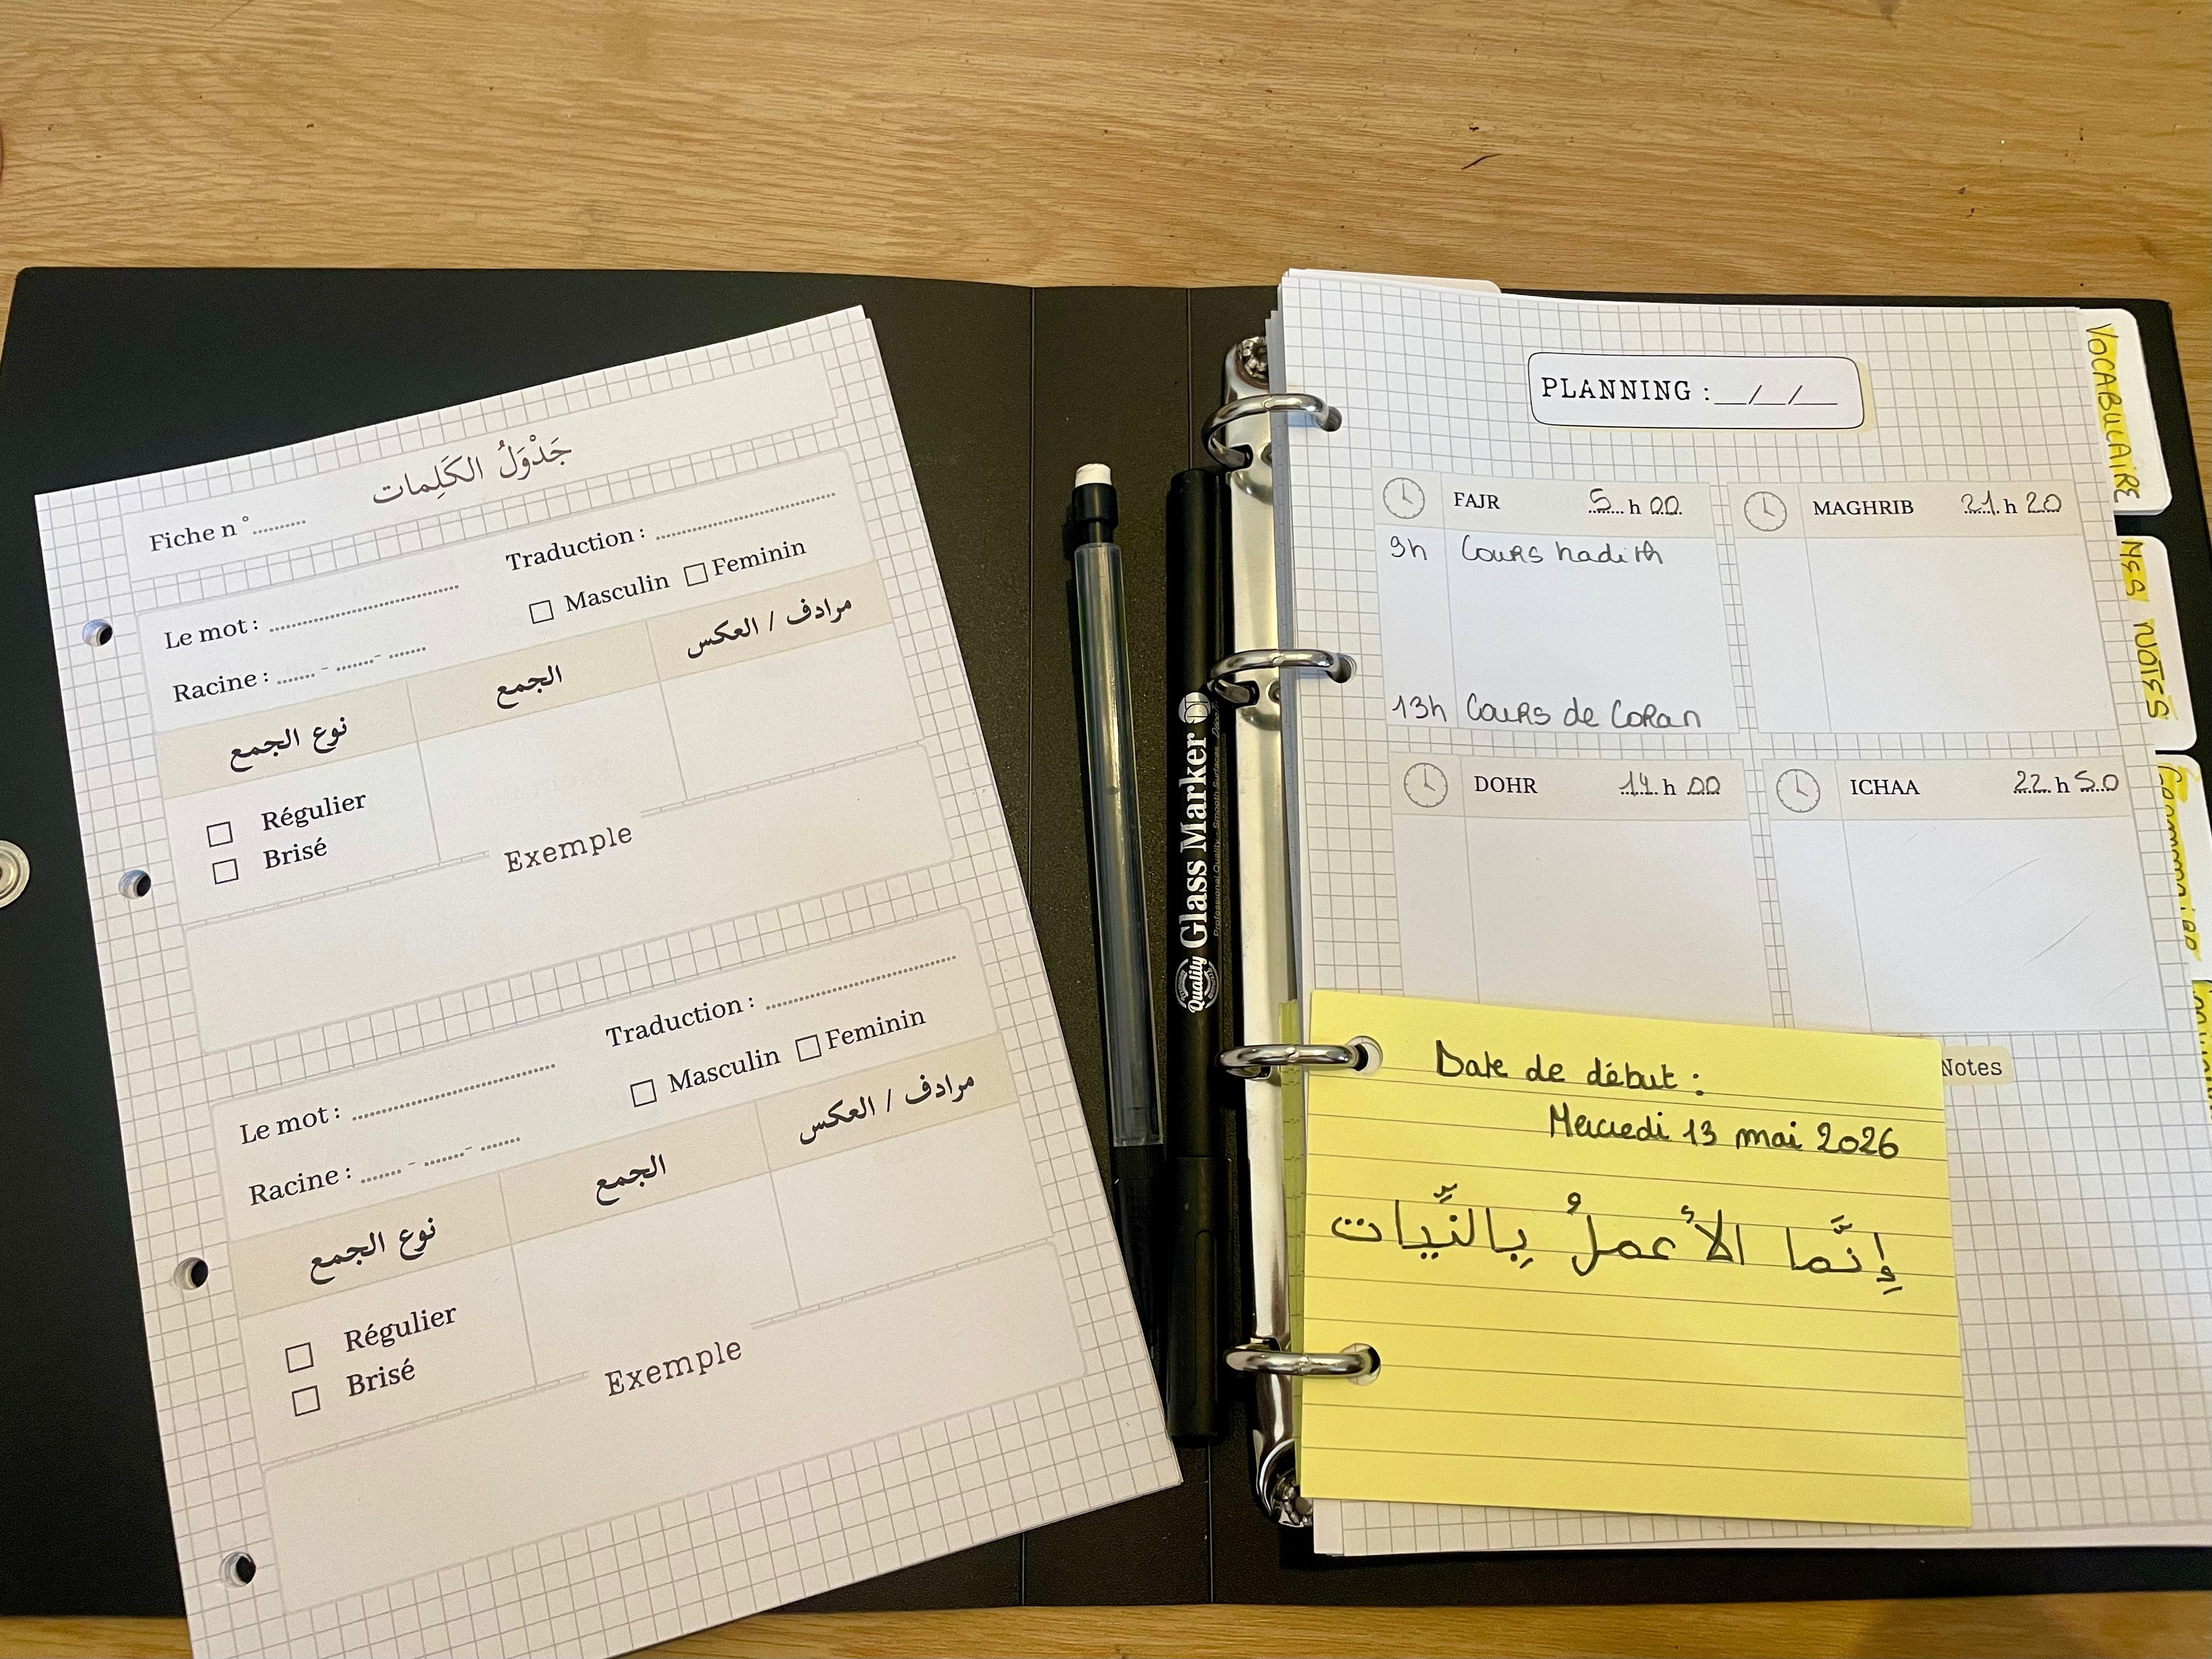 جَدْوَلُ الكَلِمات
Fiche n°..........
Le mot : ..............................
Traduction : ..............................
Racine : ...... - ...... - ......
☐ Masculin ☐ Feminin
نوع الجمع
الجمع
مرادف / العكس
☐ Régulier
☐ Brisé
Exemple
Le mot : ..............................
Traduction : ..............................
Racine : ...... - ...... - ......
☐ Masculin ☐ Feminin
نوع الجمع
الجمع
مرادف / العكس
☐ Régulier
☐ Brisé
Exemple
Quality Glass Marker
Professional Quality - Smooth Surfaces
PLANNING : __/__/__
FAJR 5 h 00
9h Cours hadith
13h Cours de Coran
MAGHRIB 21 h 20
DOHR 14 h 00
ICHAA 22 h 50
Notes
Date de début :
Mercredi 13 mai 2026
إِنَّما الأَعملُ بِالنِّيَّات
VOCABULAIRE
MES NOTES